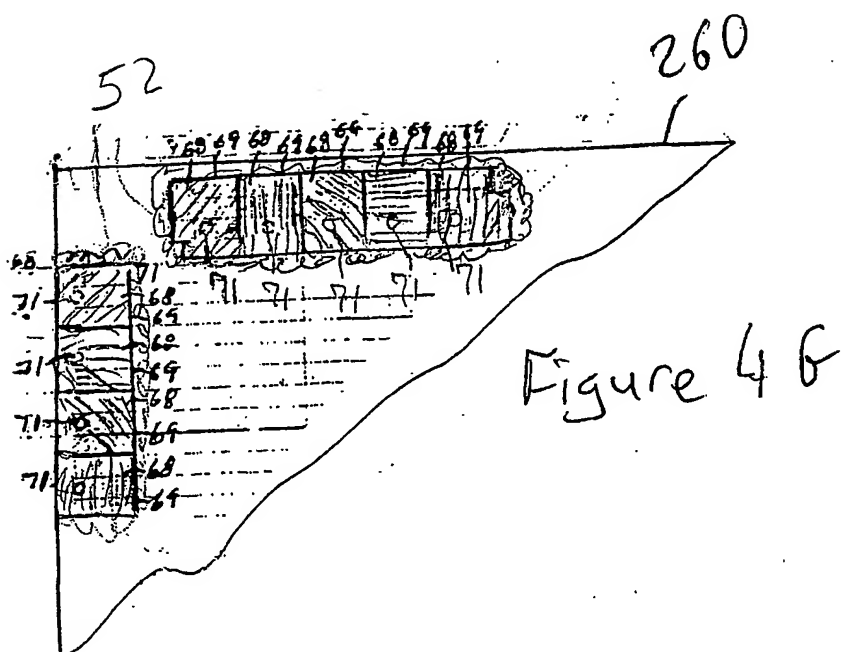 260
52
68 69 68 69 68 69 68 69 68 69
71 71 71 71 71
68 71
71 68
69
71 68
69
68
71 69
71 68
69
Figure 4 G